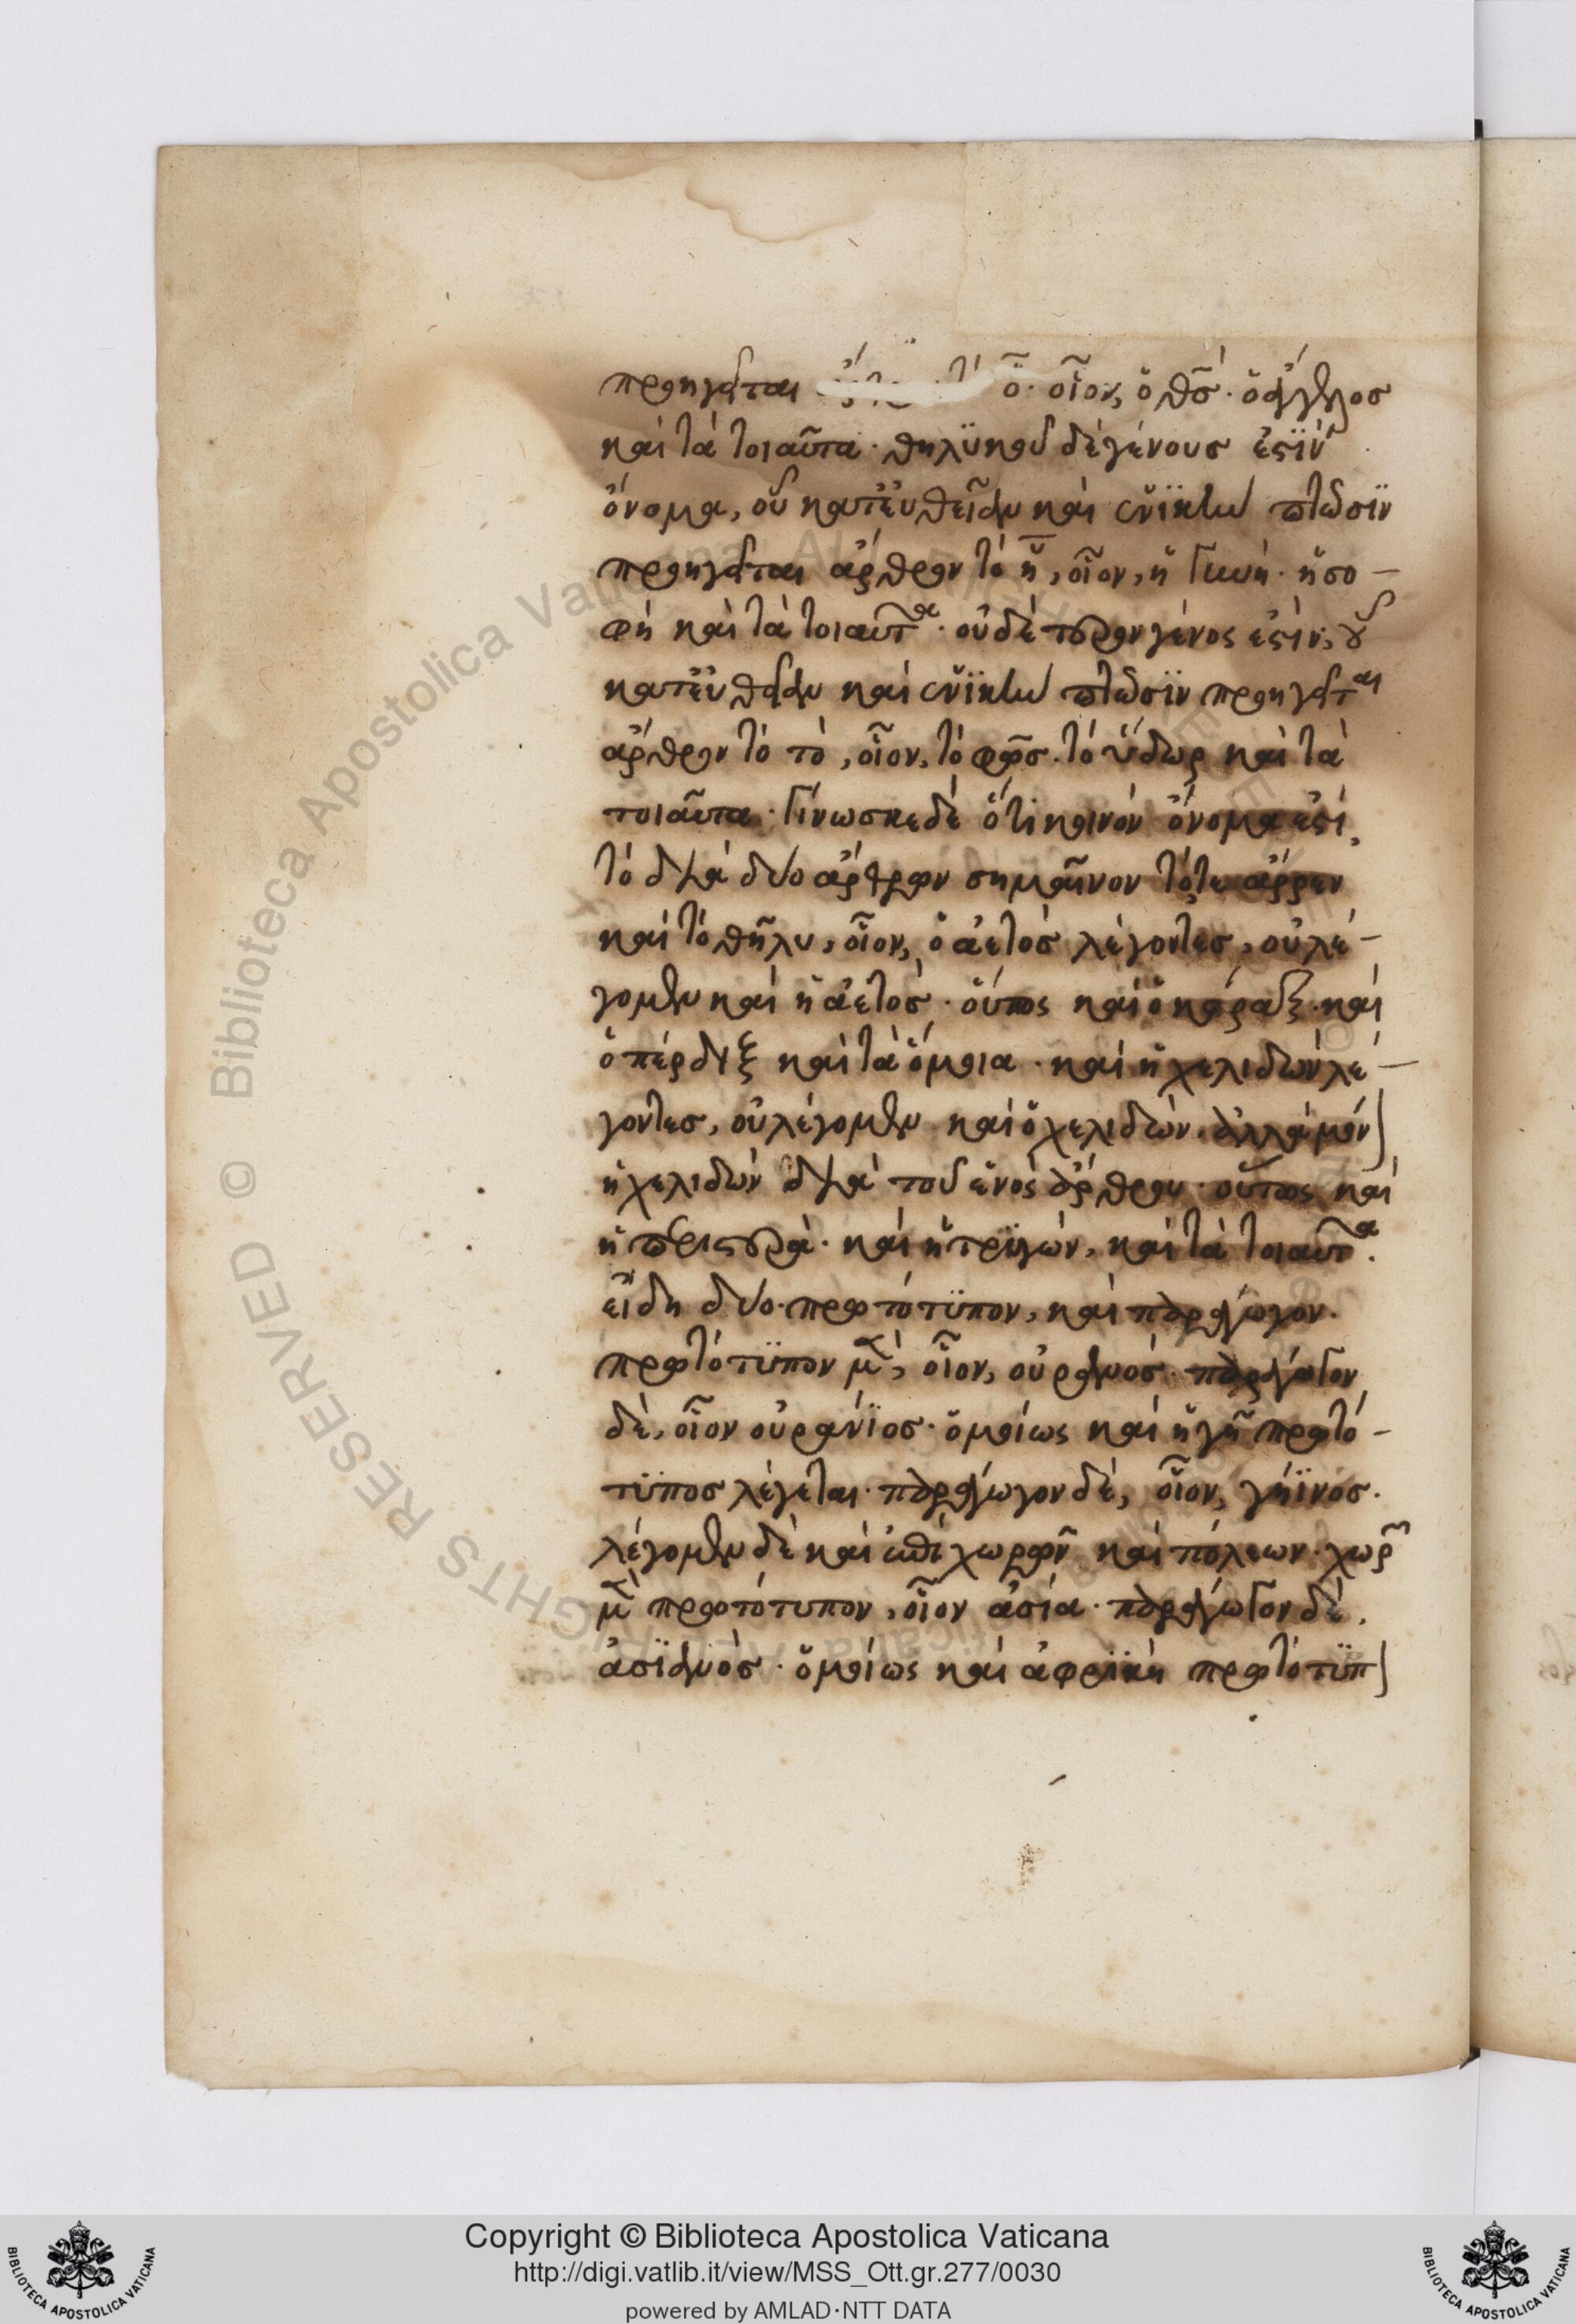 προηγεῖται ὁ· οἷον, ὁ θς· ὁ ἄγγελος
καὶ τὰ τοιαῦτα· θηλϋκοῦ δὲ γένους ἐστΐν
ὄνομα, οὗ κατ' εὐθεῖαν καὶ ἑνϊκὴν πτῶσϊν
προηγεῖται ἄρθρον τὸ ἡ, οἷον, ἡ γυνὴ· ἡ σο-
φὴ καὶ τὰ τοιαῦτα· οὐδέτερον γένος ἐστὶν, οὗ
κατ' εὐθεῖαν καὶ ἑνϊκὴν πτῶσϊν προηγεῖται
ἄρθρον τὸ τὸ, οἷον, τὸ φῶς· τὸ ὕδωρ καὶ τὰ
τοιαῦτα· Γίνωσκε δὲ ὅτι κοινὸν ὄνομα ἐστὶ,
τὸ διὰ δύο ἄρθρων σημαῖνον τότε ἄρρεν
καὶ τὸ θῆλυ, οἷον, ὁ ἀετὸς λέγοντες, οὐ λέ-
γομεν καὶ ἡ ἀετὸς· οὕτως καὶ ὁ κόραξ· καὶ
ὁ πέρδιξ καὶ τὰ ὅμοια· καὶ ἡ χελιδὼν λέ-
γοντες, οὐ λέγομεν καὶ ὁ χελιδὼν, ἀλλὰ μόν
ἡ χελιδὼν διὰ τοῦ ἑνὸς ἄρθρου· οὕτως καὶ
ἡ περιστερὰ· καὶ ἡ τρϋγὼν, καὶ τὰ τοιαῦτα.
εἴδη δύο· πρωτότϋπον, καὶ παράγωγον.
πρωτότϋπον μὲν, οἷον, οὐρανός· παράγωγον
δὲ, οἷον οὐράνϊος· ὁμοίως καὶ ἡ γῆ πρωτό-
τϋπος λέγεται· παράγωγον δὲ, οἷον, γήϊνος.
λέγομεν δὲ καὶ ἐπὶ χωρῶν καὶ πόλεων· χωρῶν
μὲν πρωτότυπον, οἷον ἀσία· παράγωγον δὲ,
ἀσϊανὸς· ὁμοίως καὶ ἀφρϊκὴ πρωτότϋπ
Copyright © Biblioteca Apostolica Vaticana
http://digi.vatlib.it/view/MSS_Ott.gr.277/0030
powered by AMLAD·NTT DATA